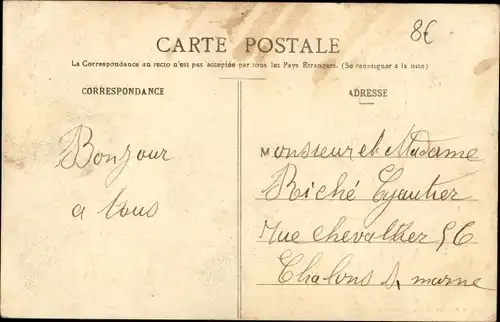 8€
CARTE POSTALE
La Correspondance au recto n'est pas acceptée par tous les Pays Etrangers. (Se renseigner à la poste)
CORRESPONDANCE
ADRESSE
Bonjour
a tous
Monsieur et Madame
Riché Gautier
rue chevallier 56
Chalons s marne